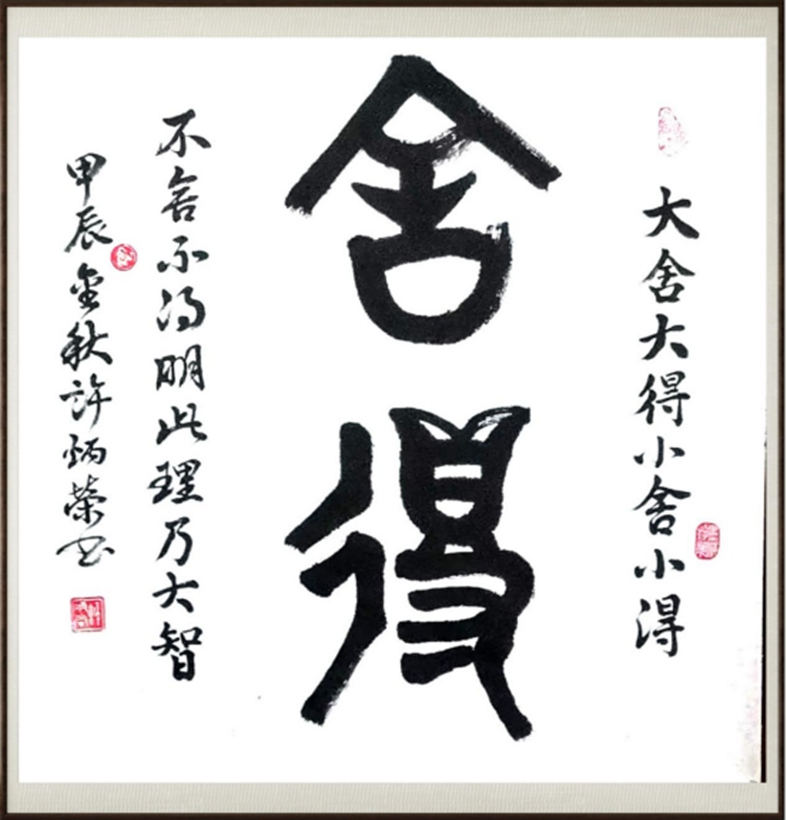 大舍大得小舍小得
舍得
不舍不得明此理乃大智
甲辰金秋許炳榮书